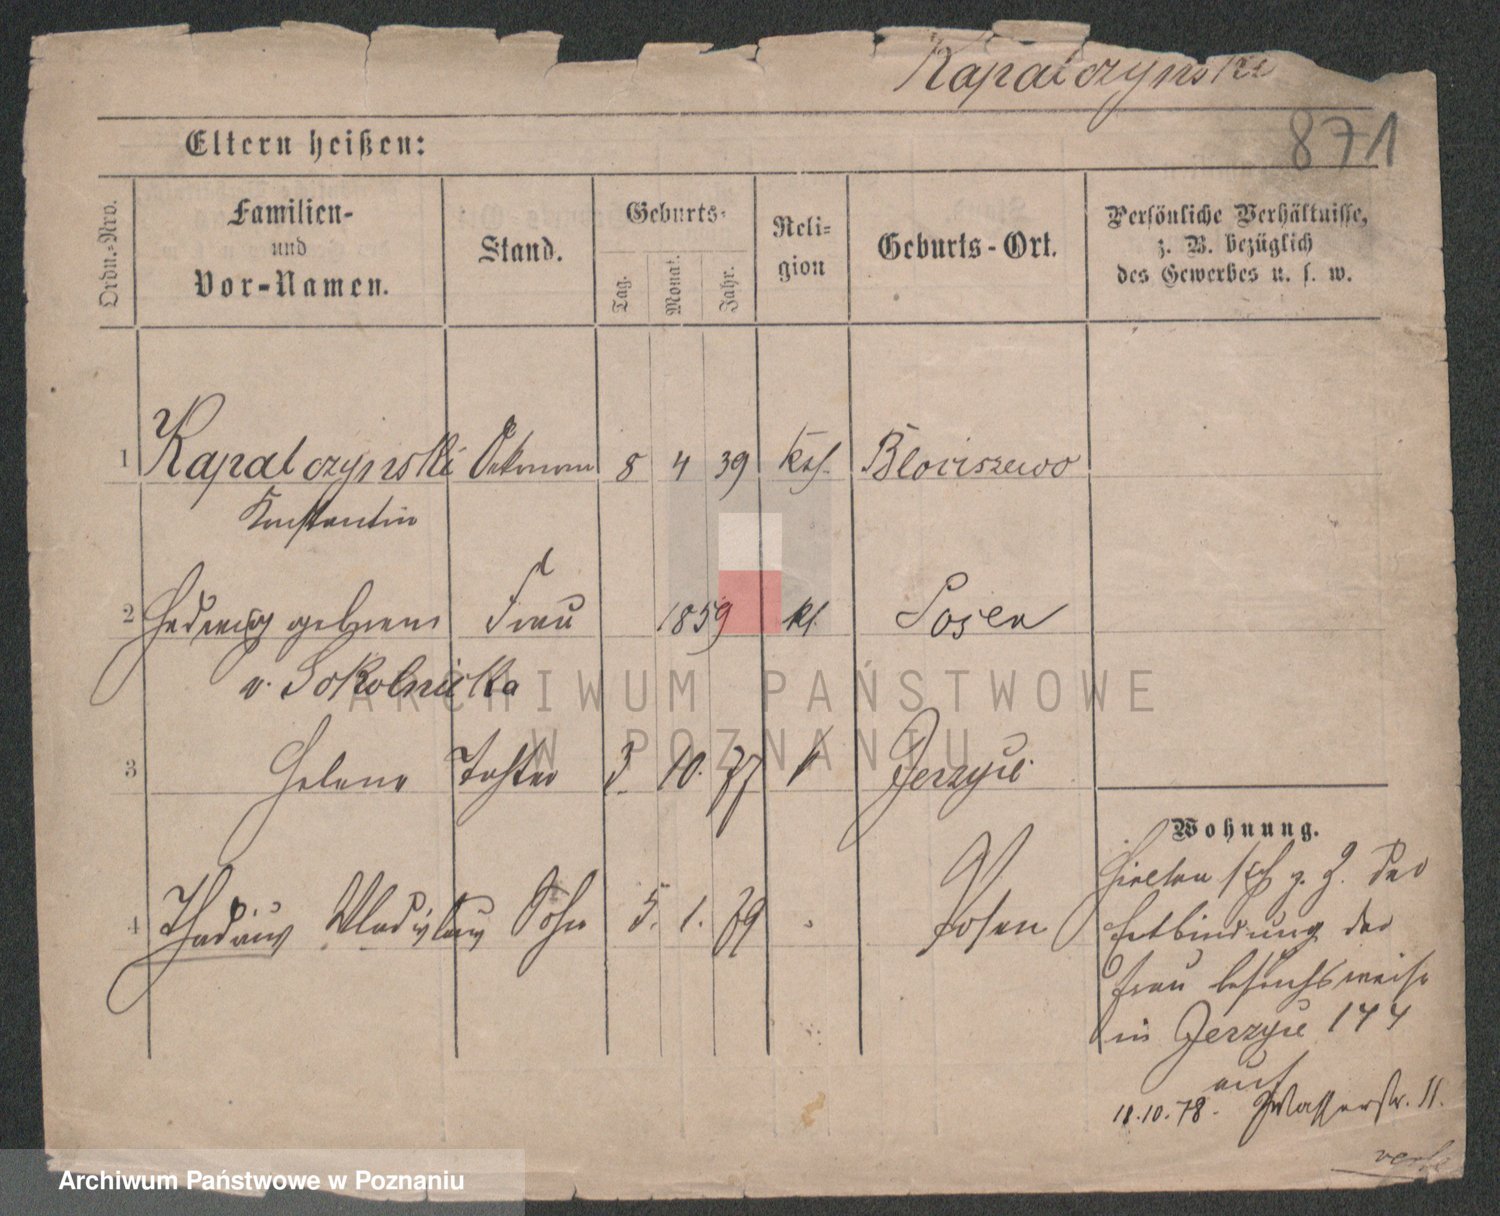 Kapalczynski
871
Eltern heißen:
Ordn.-Nro.
Familien-
und
Vor-Namen.
Stand.
Geburts-
Tag.
Monat.
Jahr.
Reli-
gion
Geburts-Ort.
Persönliche Verhältnisse,
z. B. bezüglich
des Gewerbes u. s. w.
1 Kapalczynski Oekonom 8 4 39 kth. Blociszewo
Konstantin
2 Hedwig geborene Frau 1859 kt Posen
v. Sokolnicka
3 Helene Tochter 3. 10. 77 Jerzyce
4 Thadäus Wladislaus Sohn 5. 1. 79 Posen
Wohnung.
Hielten sich z. Z. der
Entbindung der
Frau besuchsweise
in Jerzyce 144
auf
18.10.78. Wasserstr. 11.
ARCHIWUM PAŃSTWOWE
W POZNANIU
Archiwum Państwowe w Poznaniu